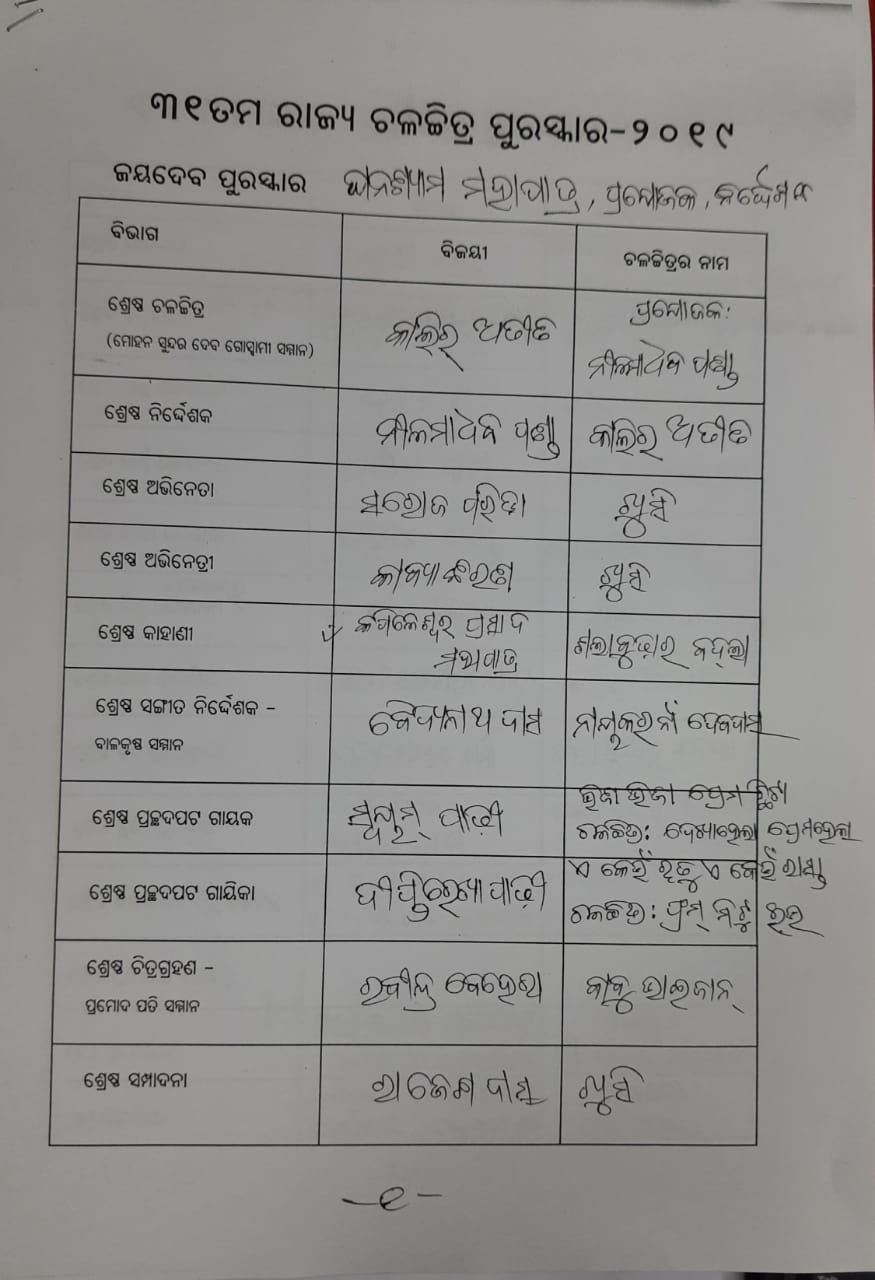 ୩୧ତମ ରାଜ୍ୟ ଚଳଚ୍ଚିତ୍ର ପୁରସ୍କାର-୨୦୧୯
ଜୟଦେବ ପୁରସ୍କାର ଘନଶ୍ୟାମ ମହାପାତ୍ର, ପ୍ରଯୋଜକ, ନିର୍ଦ୍ଦେଶକ
ବିଭାଗ ବିଜୟୀ ଚଳଚ୍ଚିତ୍ରର ନାମ
ଶ୍ରେଷ୍ଠ ଚଳଚ୍ଚିତ୍ର
(ମୋହନ ସୁନ୍ଦର ଦେବ ଗୋସ୍ୱାମୀ ସମ୍ମାନ)
କାଲିର ଅତୀତ
ପ୍ରଯୋଜକ:
ନୀଳମାଧବ ପଣ୍ଡା
ଶ୍ରେଷ୍ଠ ନିର୍ଦ୍ଦେଶକ ନୀଳମାଧବ ପଣ୍ଡା କାଲିର ଅତୀତ
ଶ୍ରେଷ୍ଠ ଅଭିନେତା ସରୋଜ ପରିଡା ଖୁସି
ଶ୍ରେଷ୍ଠ ଅଭିନେତ୍ରୀ କାବ୍ୟା କିରଣ ଖୁସି
ଶ୍ରେଷ୍ଠ କାହାଣୀ
କପିଳେଶ୍ୱର ପ୍ରସାଦ
ମହାପାତ୍ର
ଶଲାବୁଢାର ବଦଲା
ଶ୍ରେଷ୍ଠ ସଙ୍ଗୀତ ନିର୍ଦ୍ଦେଶକ -
ବାଳକୃଷ୍ଣ ସମ୍ମାନ
ବୈଦ୍ୟନାଥ ଦାସ
ଦେବଦାସ
ଶ୍ରେଷ୍ଠ ପ୍ରଚ୍ଛଦପଟ ଗାୟକ
ପାଢ଼ୀ
ଭିଜା ଭିଜା ପ୍ରେମ
ଚଳଚ୍ଚିତ୍ର: ଦେଖାହେଲା ପ୍ରେମହେଲା
ଶ୍ରେଷ୍ଠ ପ୍ରଚ୍ଛଦପଟ ଗାୟିକା
ଦୀପ୍ତିରେଖା ପାଢ଼ୀ
ଏ କେଉଁ ଋତୁ ଏ କେଉଁ ରାସ୍ତା
ଚଳଚ୍ଚିତ୍ର:
ଶ୍ରେଷ୍ଠ ଚିତ୍ରଗ୍ରହଣ -
ପ୍ରମୋଦ ପତି ସମ୍ମାନ
ରବୀନ୍ଦ୍ର ବେହେରା
ବାବୁ ଭାଇଜାନ୍
ଶ୍ରେଷ୍ଠ ସମ୍ପାଦନା ରାଜେଶ ଦାସ ଖୁସି
-୧-